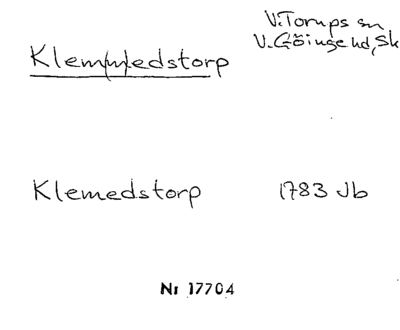 V. Torups sn
V. Göinge hd, Sk
Klem(m)edstorp
Klemedstorp 1783 Jb
Nr 17704